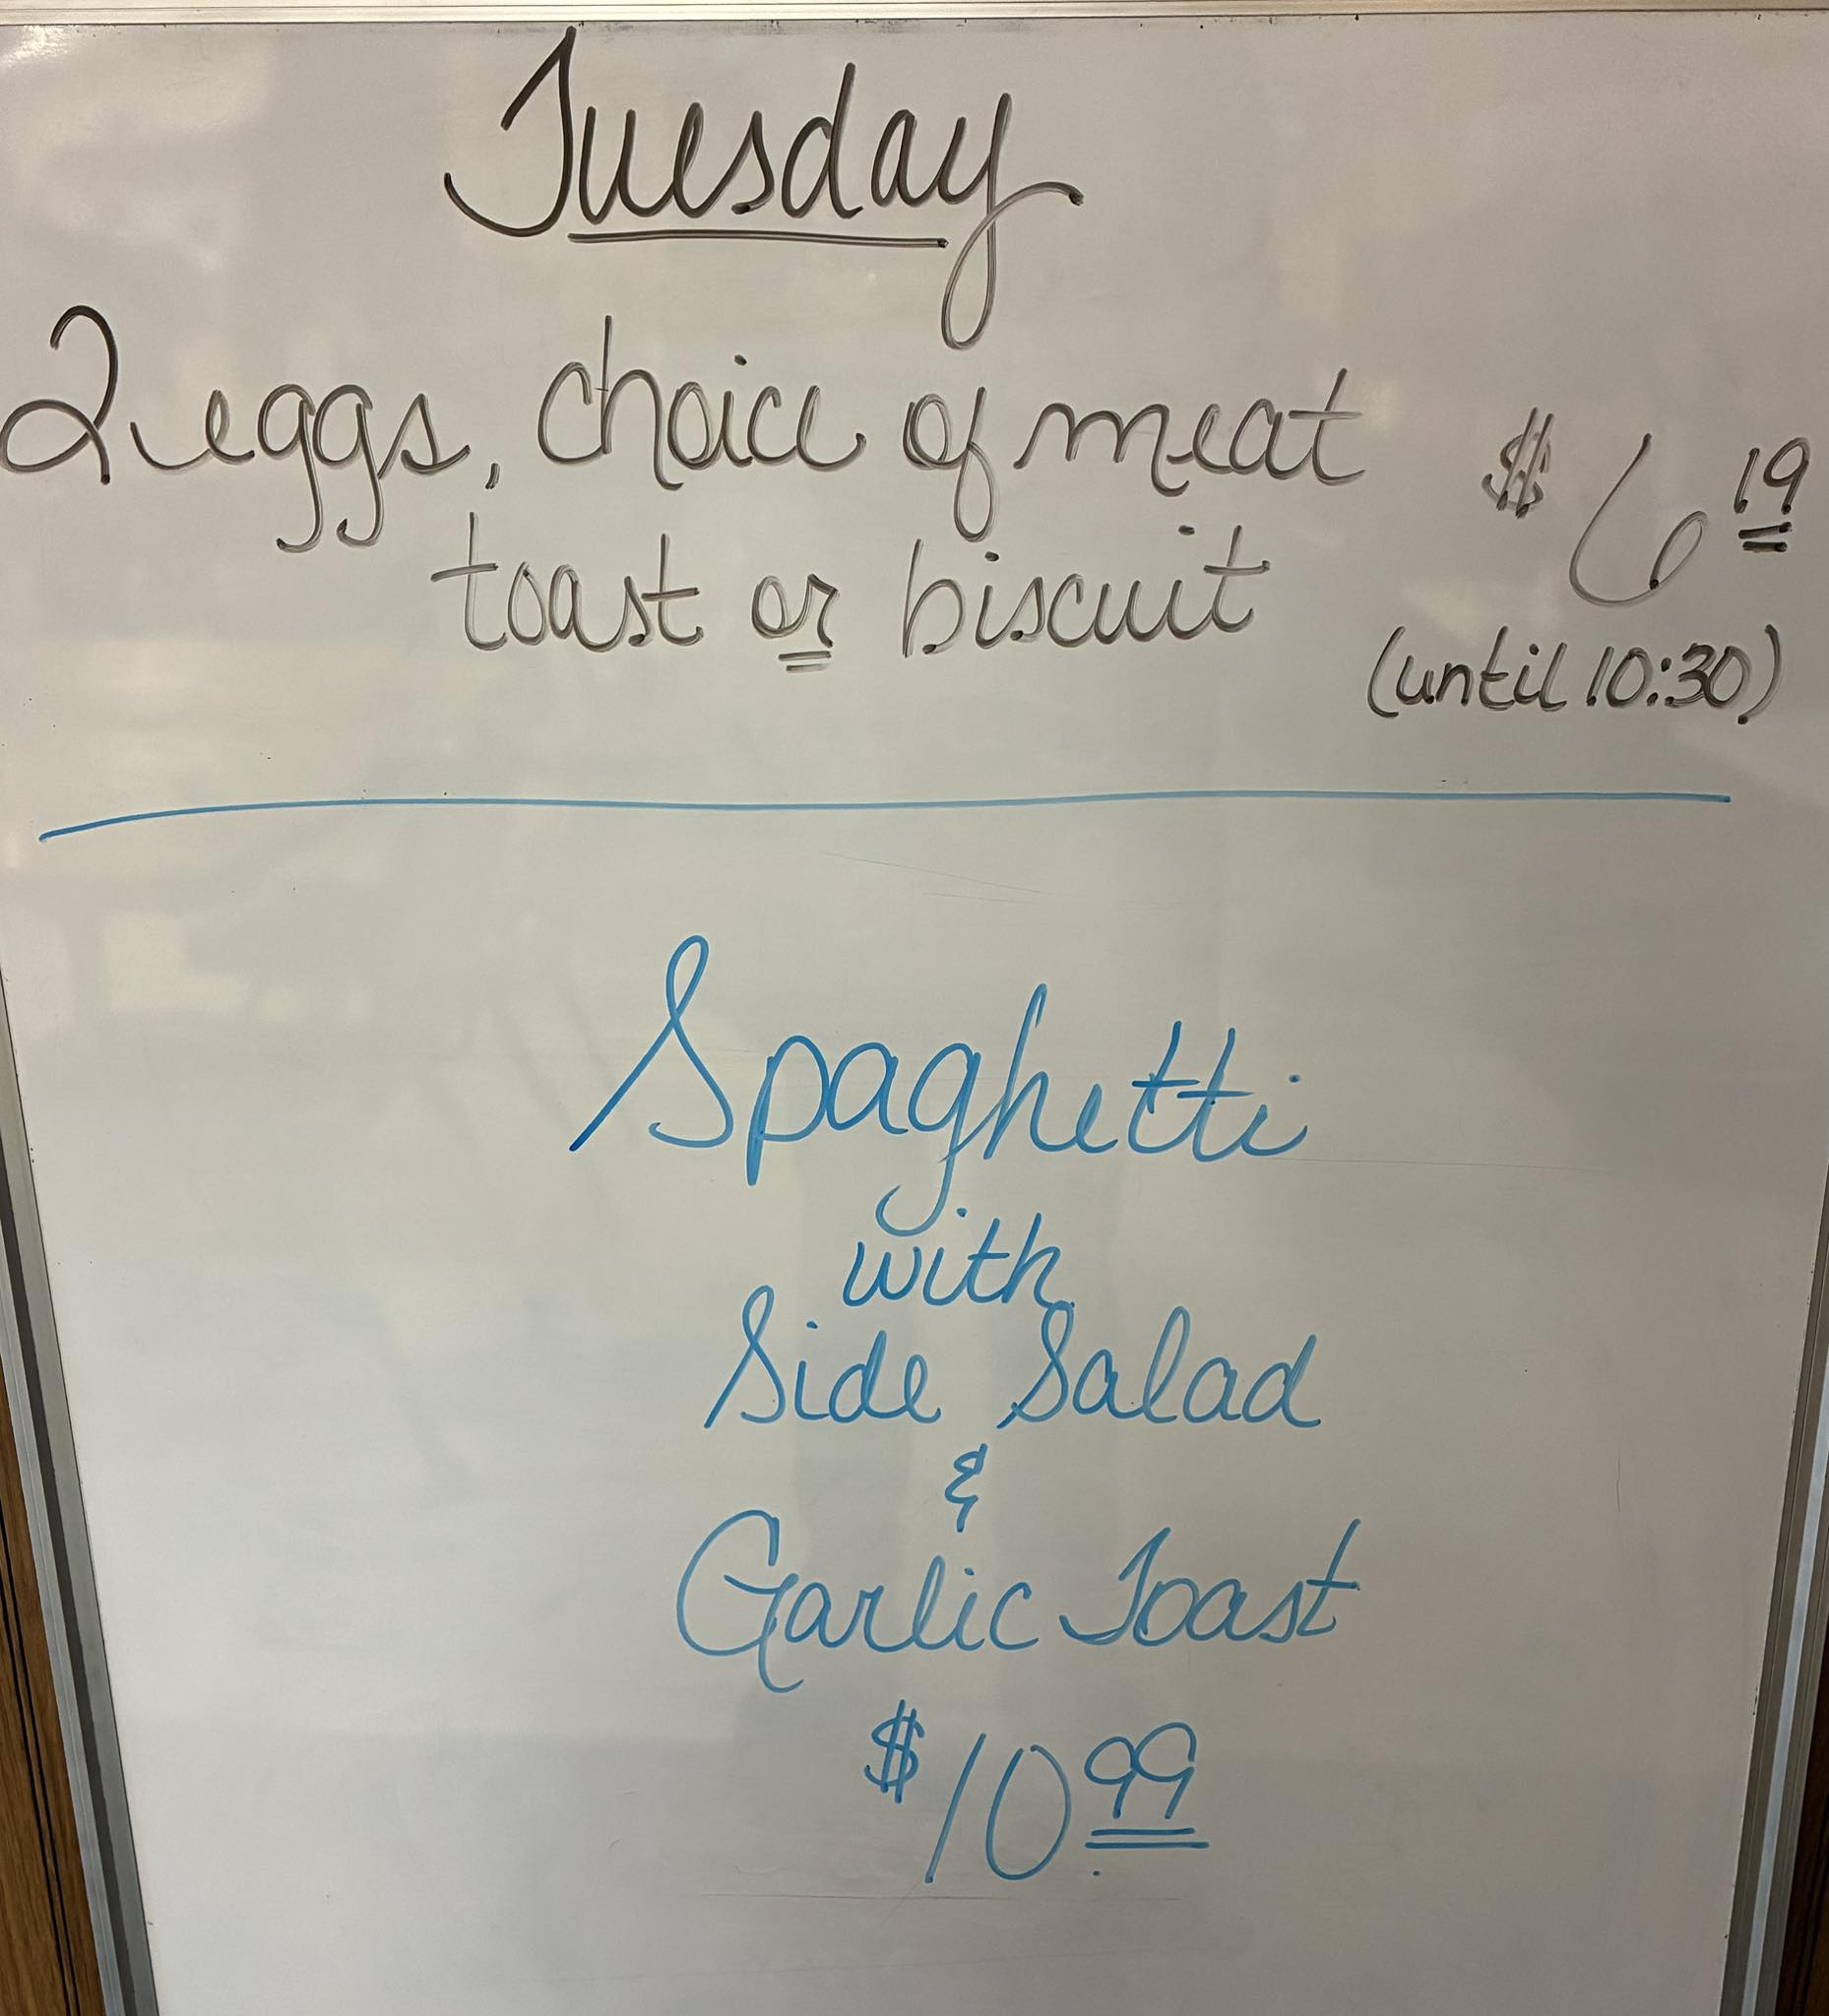 Tuesday
2 eggs, choice of meat $6 19
toast or biscuit
(until 10:30)
Spaghetti
with
Side Salad
&
Garlic Toast
$10 99